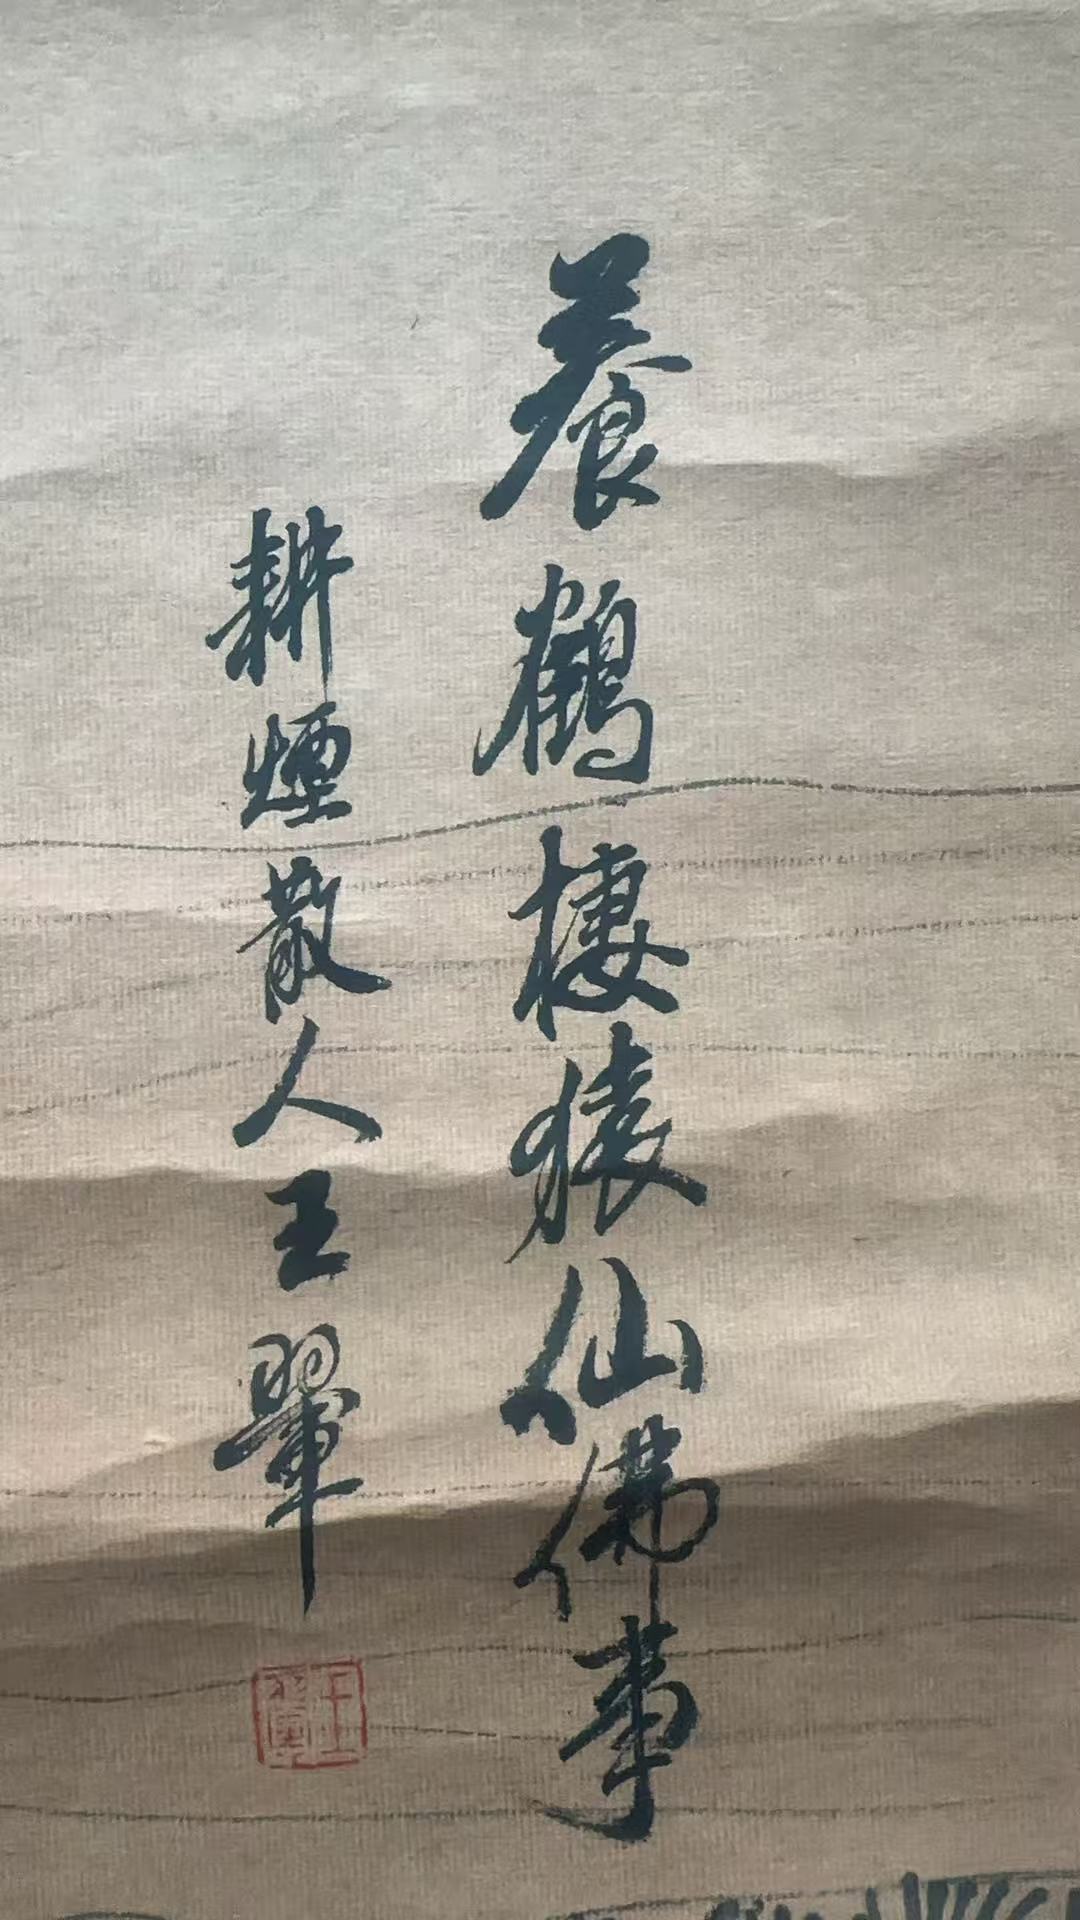 養鶴棲猿仙佛事
耕煙散人王翬
王翬